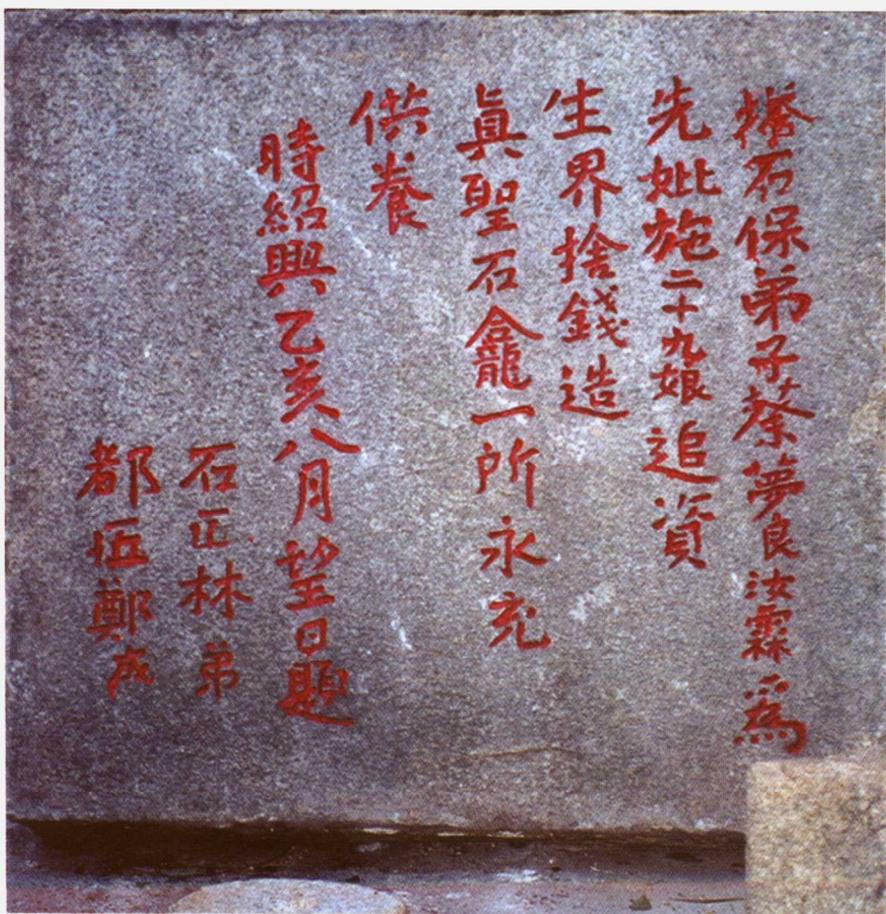 石保弟子蔡夢良汝霖爲
先妣施二十九娘追資
生界捨錢造
眞聖石龕一所永充
供養
時紹興乙亥八月望日題
石匠林弟
都匠鄭成